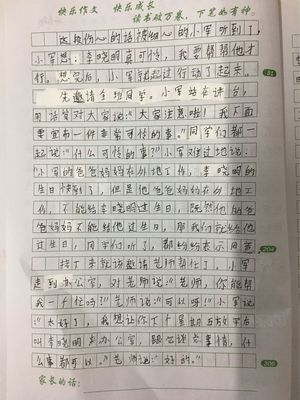 快乐作文 快乐成长
读书破万卷，下笔如有神。
这段伤心的话被细心的小军听到了，
小军想：李晓明真可怜，我要帮帮他才
行。想完后，小军就起过行动了起来。
先邀请全班同学。小军站在讲台，
用话筒对大家说：“大家注意啦！我下面
要宣布一件非常可怜的事。”同学们都一
起说：“什么可怜的事？”小军难过地说：
小军的爸爸妈妈在外地工作，李晓明的
生日快到了，但是他爸爸妈妈在外地工
作，不能给李晓明过生日，既然他的爸
爸妈妈不能给他过生日，那我们就给他
过生日，同学们听了，都纷纷表示同意
接下来就该邀请老师帮忙了，小军
走到办公室，对老师说：“老师，你能帮
我一个忙吗？”老师说：“可以呀！”小军说
：“太好了，我想让你下个星期五放学后
叫李晓明来办公室，跟说点事情，什
么事都可以。”老师说：“好的。”
家长的话：